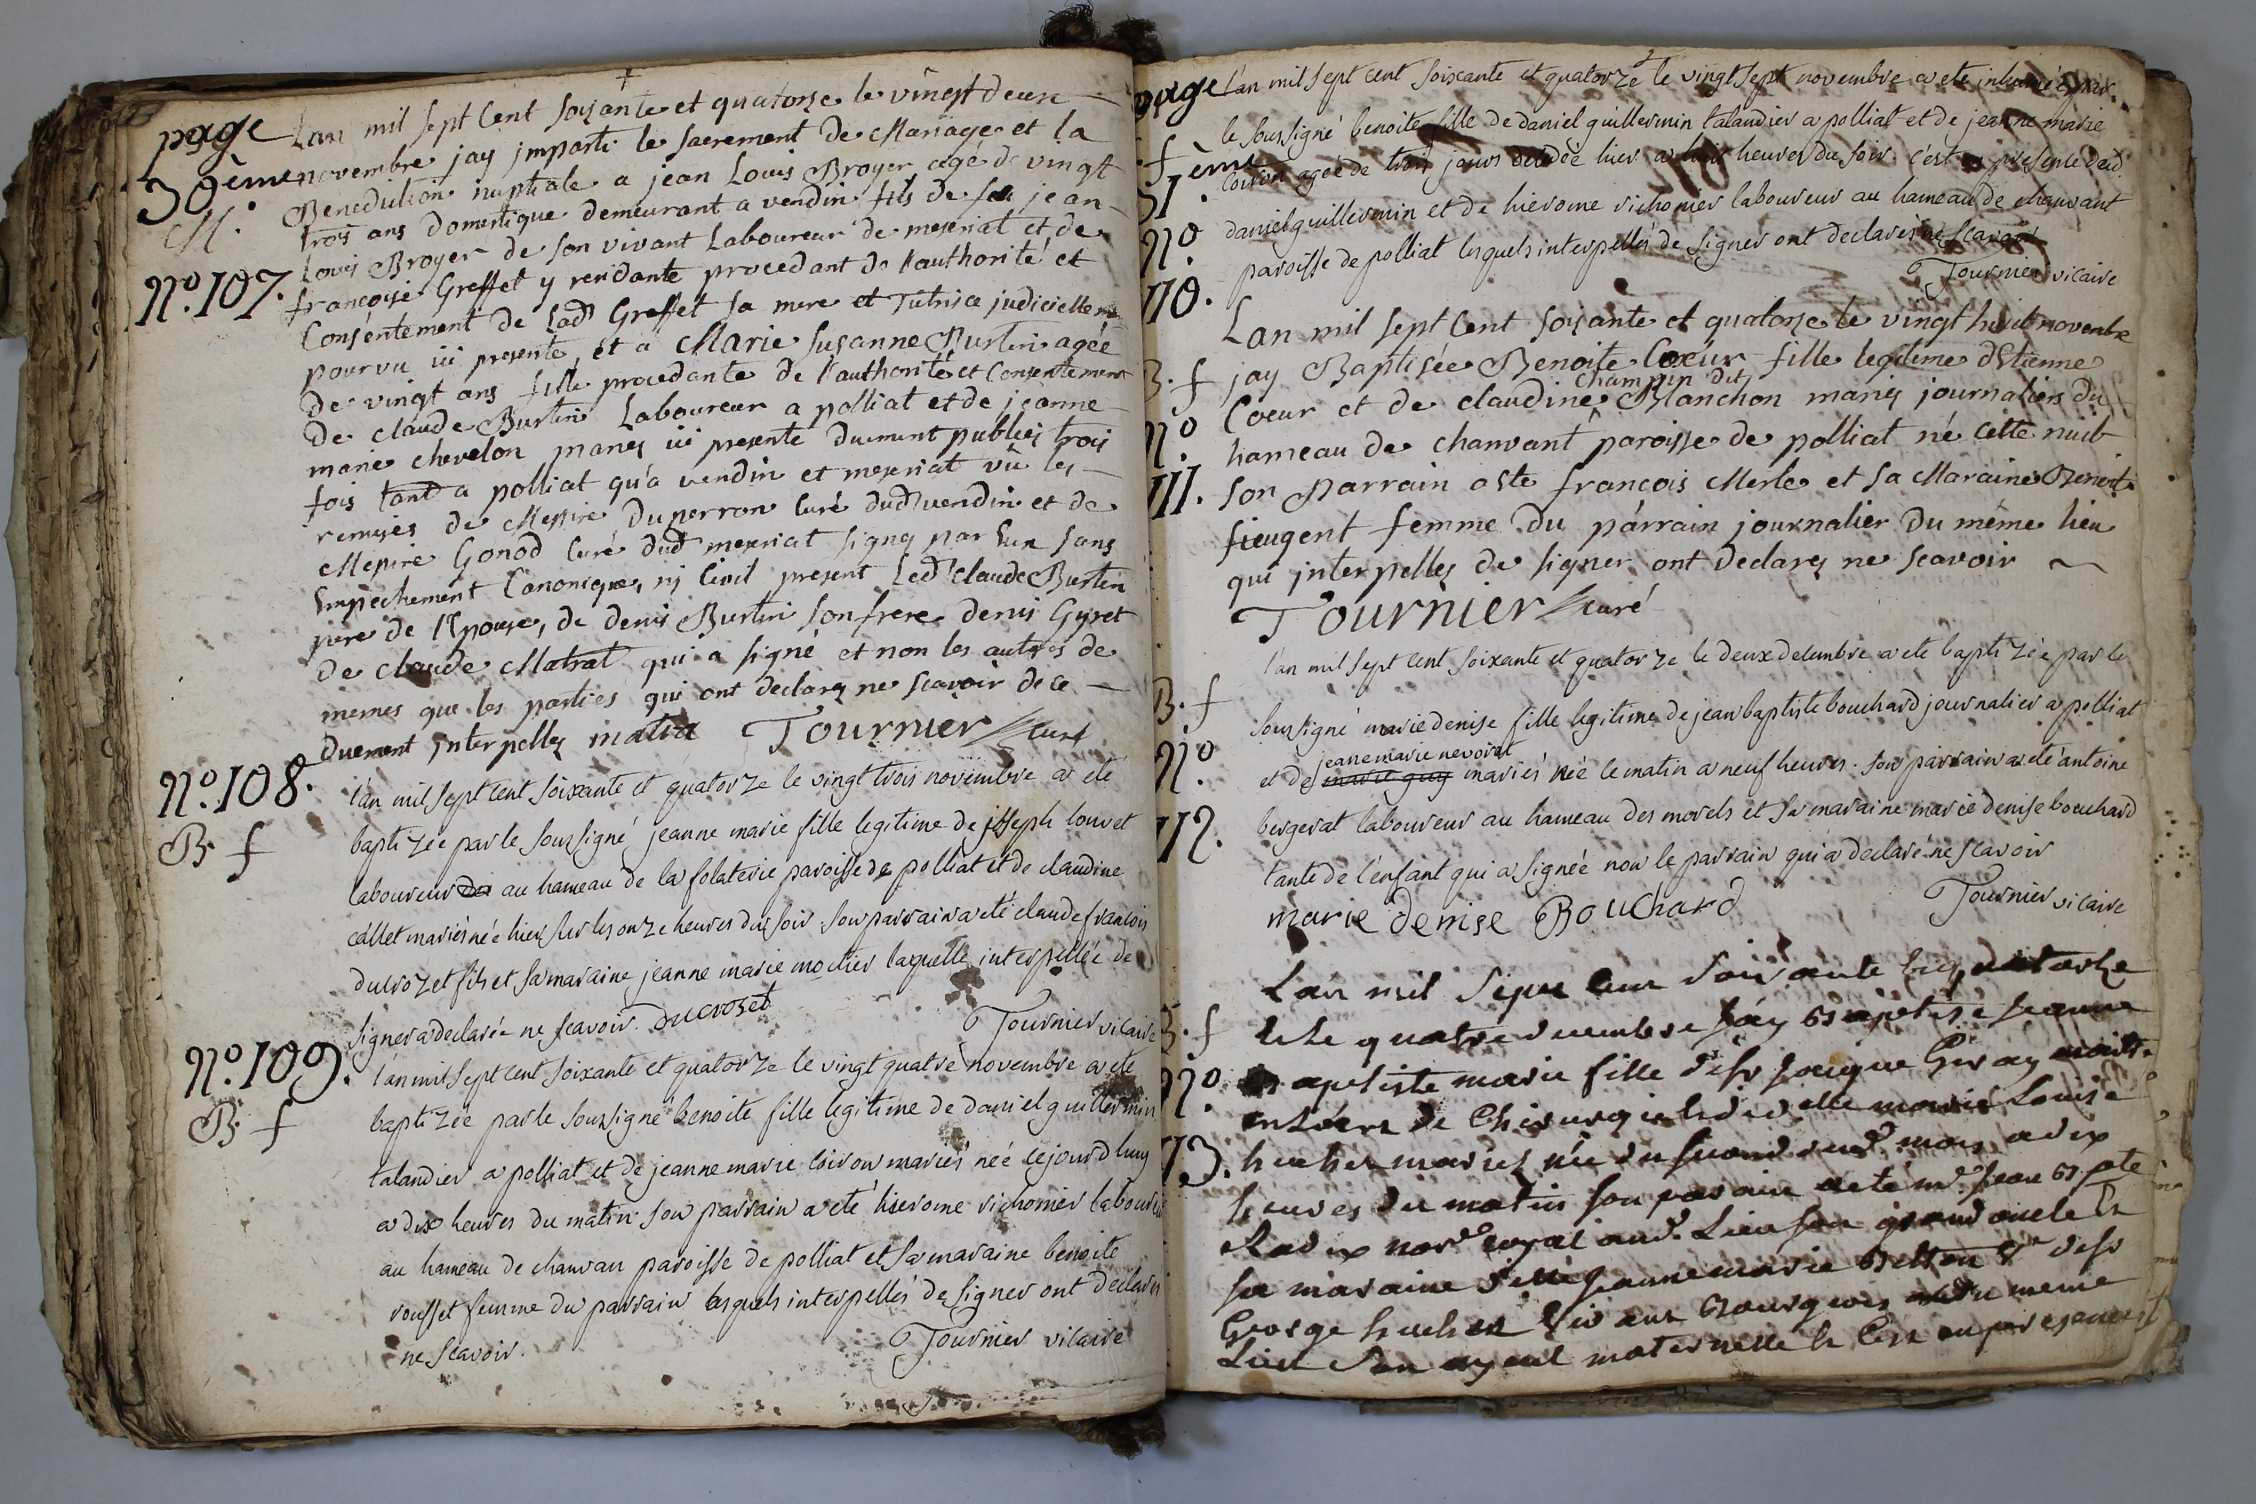 page
30ème
M.
N.º 107.
Lan mil sept Cent soixante et quatorze le vingt deux
novembre jay imparti le sacrement de Mariage et la
Benediction nuptiale a jean Louis Broyer agé de vingt
trois ans domestique demeurant a vendin fils de feu jean
Louis Broyer de son vivant Laboureur de mezeriat et de
francoise Greffet y residante procedant de l'authorité et
Consentement de Lad Greffet sa mere et Tutrice judiciellemt
pourvu ici presente, et a Marie Susanne Burtin agée
de vingt ans fille procedante de l'authorité et Consentement
de claude Burtin Laboureur a polliat et de jeanne
marie chevelon mariés ici presente duement publiés trois
fois tant a polliat qu'a vendin et mezeriat vû les
remises de Messire Duperron Curé dud vendin et de
Messire Gonod Curé dud mezeriat signés par Eux sans
Empechement Canonique, nj Civil present Led claude Burtin
pere de l'Epouse, de denis Burtin son frere denis Gyret
de claude Matrat qui a signé et non les autres de
memes que les parties qui ont declarés ne scavoir de ce
duement interpellés matra Tournier Curé
N.º 108.
B. f
l'an mil sept cent soixante et quatorze le vingt trois novembre a ete
baptizée par le soussigné jeanne marie fille legitime de joseph louvet
laboureur au hameau de la folaterie paroisse de polliat et de claudine
callet mariés née hier sur les onze heures du soir. son parrain a eté claude francois
ducrozet fils et sa maraine jeanne marie mochier laquelle interpellée de
signer a declarée ne scavoir. Ducroset
Tournier vicaire
N.º 109.
B. f
l'an mil sept cent soixante et quatorze le vingt quatre novembre a ete
baptizée par le soussigné benoite fille legitime de daniel guillermin
talandier a polliat et de jeanne marie coiron mariés née cejourdhuy
a dix heures du matin son parrain a eté hierome richonier laboureur
au hameau de chanvan paroisse de polliat et sa maraine benoite
rousset femme du parrain lesquels interpellés de signer ont declarés
ne scavoir.
Tournier vicaire
page
31ème
f
N.º
110.
l'an mil sept cent soixante et quatorze le vingt sept novembre a ete inhumée par
le soussigné benoite fille de daniel guillermin talandier a polliat et de jeanne marie
coiron agée de trois jours decedée hier a huit heures du soir. c'est en presence dud.
daniel guillermin et de hierome richonier laboureur au hameau de chanvant
paroisse de polliat lesquels interpellés de signer ont declarés ne scavoir
Tournier vicaire
B. f
N.º
111.
Lan mil sept Cent soixante et quatorze le vingt huit novembre
jay Baptisée Benoite Coeur fille legitime d'Etienne
champin dit
Coeur et de claudine Blanchon mariés journaliers du
hameau de chanvant paroisse de polliat né cette nuit
son Parrain aste francois Merle et sa Maraine Benoite
fieugent femme du parrain journalier du méme lieu
qui interpellés de signer ont declarés ne scavoir
Tournier curé
B. f
N.º
112.
l'an mil sept cent soixante et quatorze le deux decembre a ete baptizée par le
soussigné marie denise fille legitime de jean baptiste bouchard journalier a polliat
jeane marie nevorat
et de marie guy mariés née le matin a neuf heures. son parrain a ete antoine
bergerat laboureur au hameau des morels et sa maraine marie denise bouchard
tante de l'enfant qui a signée non le parrain qui a declaré ne scavoir
marie denise Bouchard
Tournier vicaire
B. f
N.º
113.
Lan mil sept cent soixante et quatorze
et le quatre decembre jay Baptisé jeanne
Baptiste marie fille de sr jacque Giray maitre
en Chirurgie et de delle marie Louise
hucher mariez née du second dud. mois a dix
heures du matin son parain a eté mr jean Bpte
Radix nore royal aud. Lieu son grand oncle et
sa maraine delle jeanne marie Belton ve de sr
George hucher vivant Bourgeois du meme
Lieu son ayeul maternelle et Cen en presence